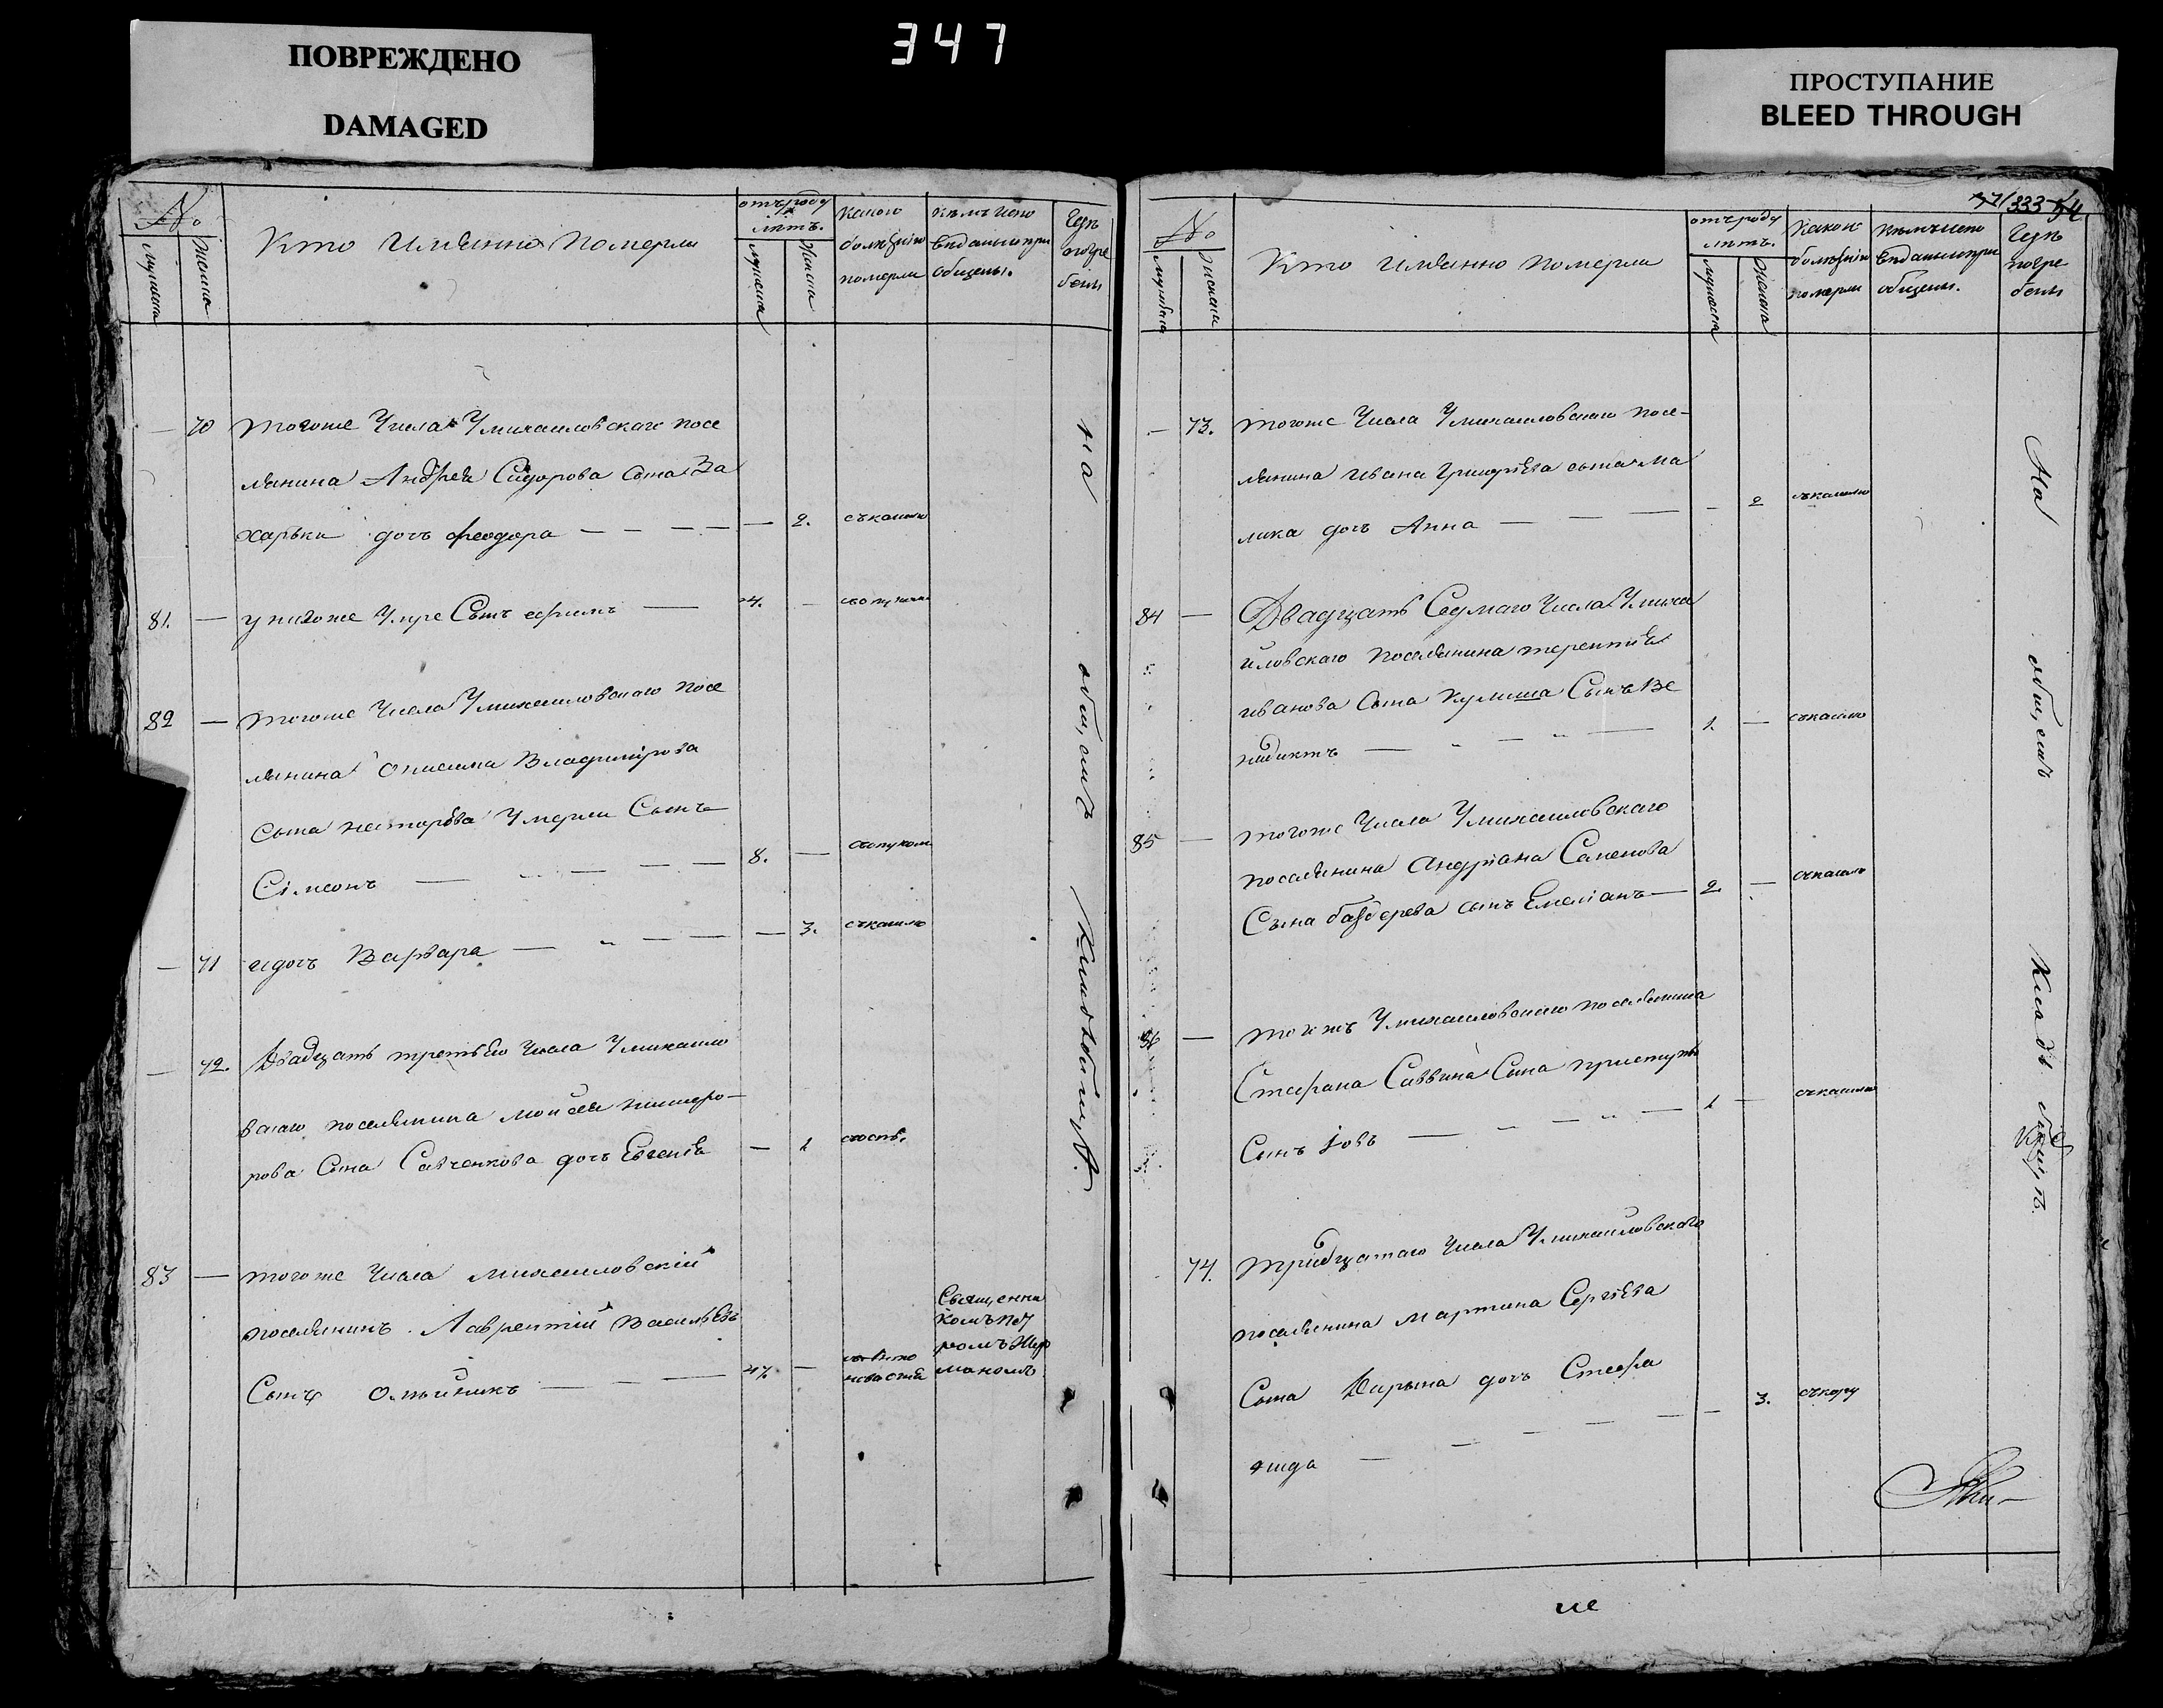 ПОВРЕЖДЕНО
DAMAGED
347
ПРОСТУПАНИЕ
BLEED THROUGH
№
мужеска
женска
Кто имянно померли
отъ роду
лѣтъ.
мужеска
женска
какою
болѣзнію
померли
кѣмъ исповѣданы и при
общены.
гдѣ
погре
бены
70 тогоже числа Умихаиловскаго посе
лянина Андрея Сидорова сына За
харьки дочь феодора — — — — — 2. съ кашлю
81. — у негоже умре Сынъ ефимъ — 4. —
82 — тогоже числа Умихаиловскаго посе
лянина Онисима Владимирова
сына несторова Умерли Сынъ
Сімеонъ — — — — 8. —
— 71 и дочь Варвара — — — — 3. съ кашлю
— 72. Двадцать третьего числа Умихаило
вскаго поселянина моисея никифо-
рова Сына Савченкова дочь Евгенія — 1
83 — тогоже числа михаиловскій
поселянинъ Лаврентій Васильевъ
Сынъ Олейникъ — — — 47. —
Священни
комъ пет
ромъ
маномъ
на общемъ кладбищѣ.
333
№
мужеска
женска
Кто имянно померли
отъ роду
лѣтъ.
мужеска
женска
какою
болѣзнію
померли
общены.
гдѣ
погре
бены
— 73. тогоже числа Умихаиловскаго посе-
лянина ивана григорьева сына ма
лика дочь Анна — — — — 2 съ кашлю
84 — Двадцать Седмаго числа Умиха
иловскаго поселянина терентія
иванова Сына Кулиша Сынъ Ве
недиктъ — — — 1. — съ кашлю
85 — тогоже числа Умихаиловскаго
поселянина Андріана Семенова
Сына сынъ Емеліанъ — 2 — съ кашлю
86 — Умихаиловскаго поселянина
Стефана Саввина Сына приступы
Сынъ Іовъ — — — — 1 — съ кашлю
74. тридцатаго числа Умихаиловскаго
поселянина мартина Сергіева
Сына дочь Стефа
нида — — — — — — 3. съ кору
На общемъ
не